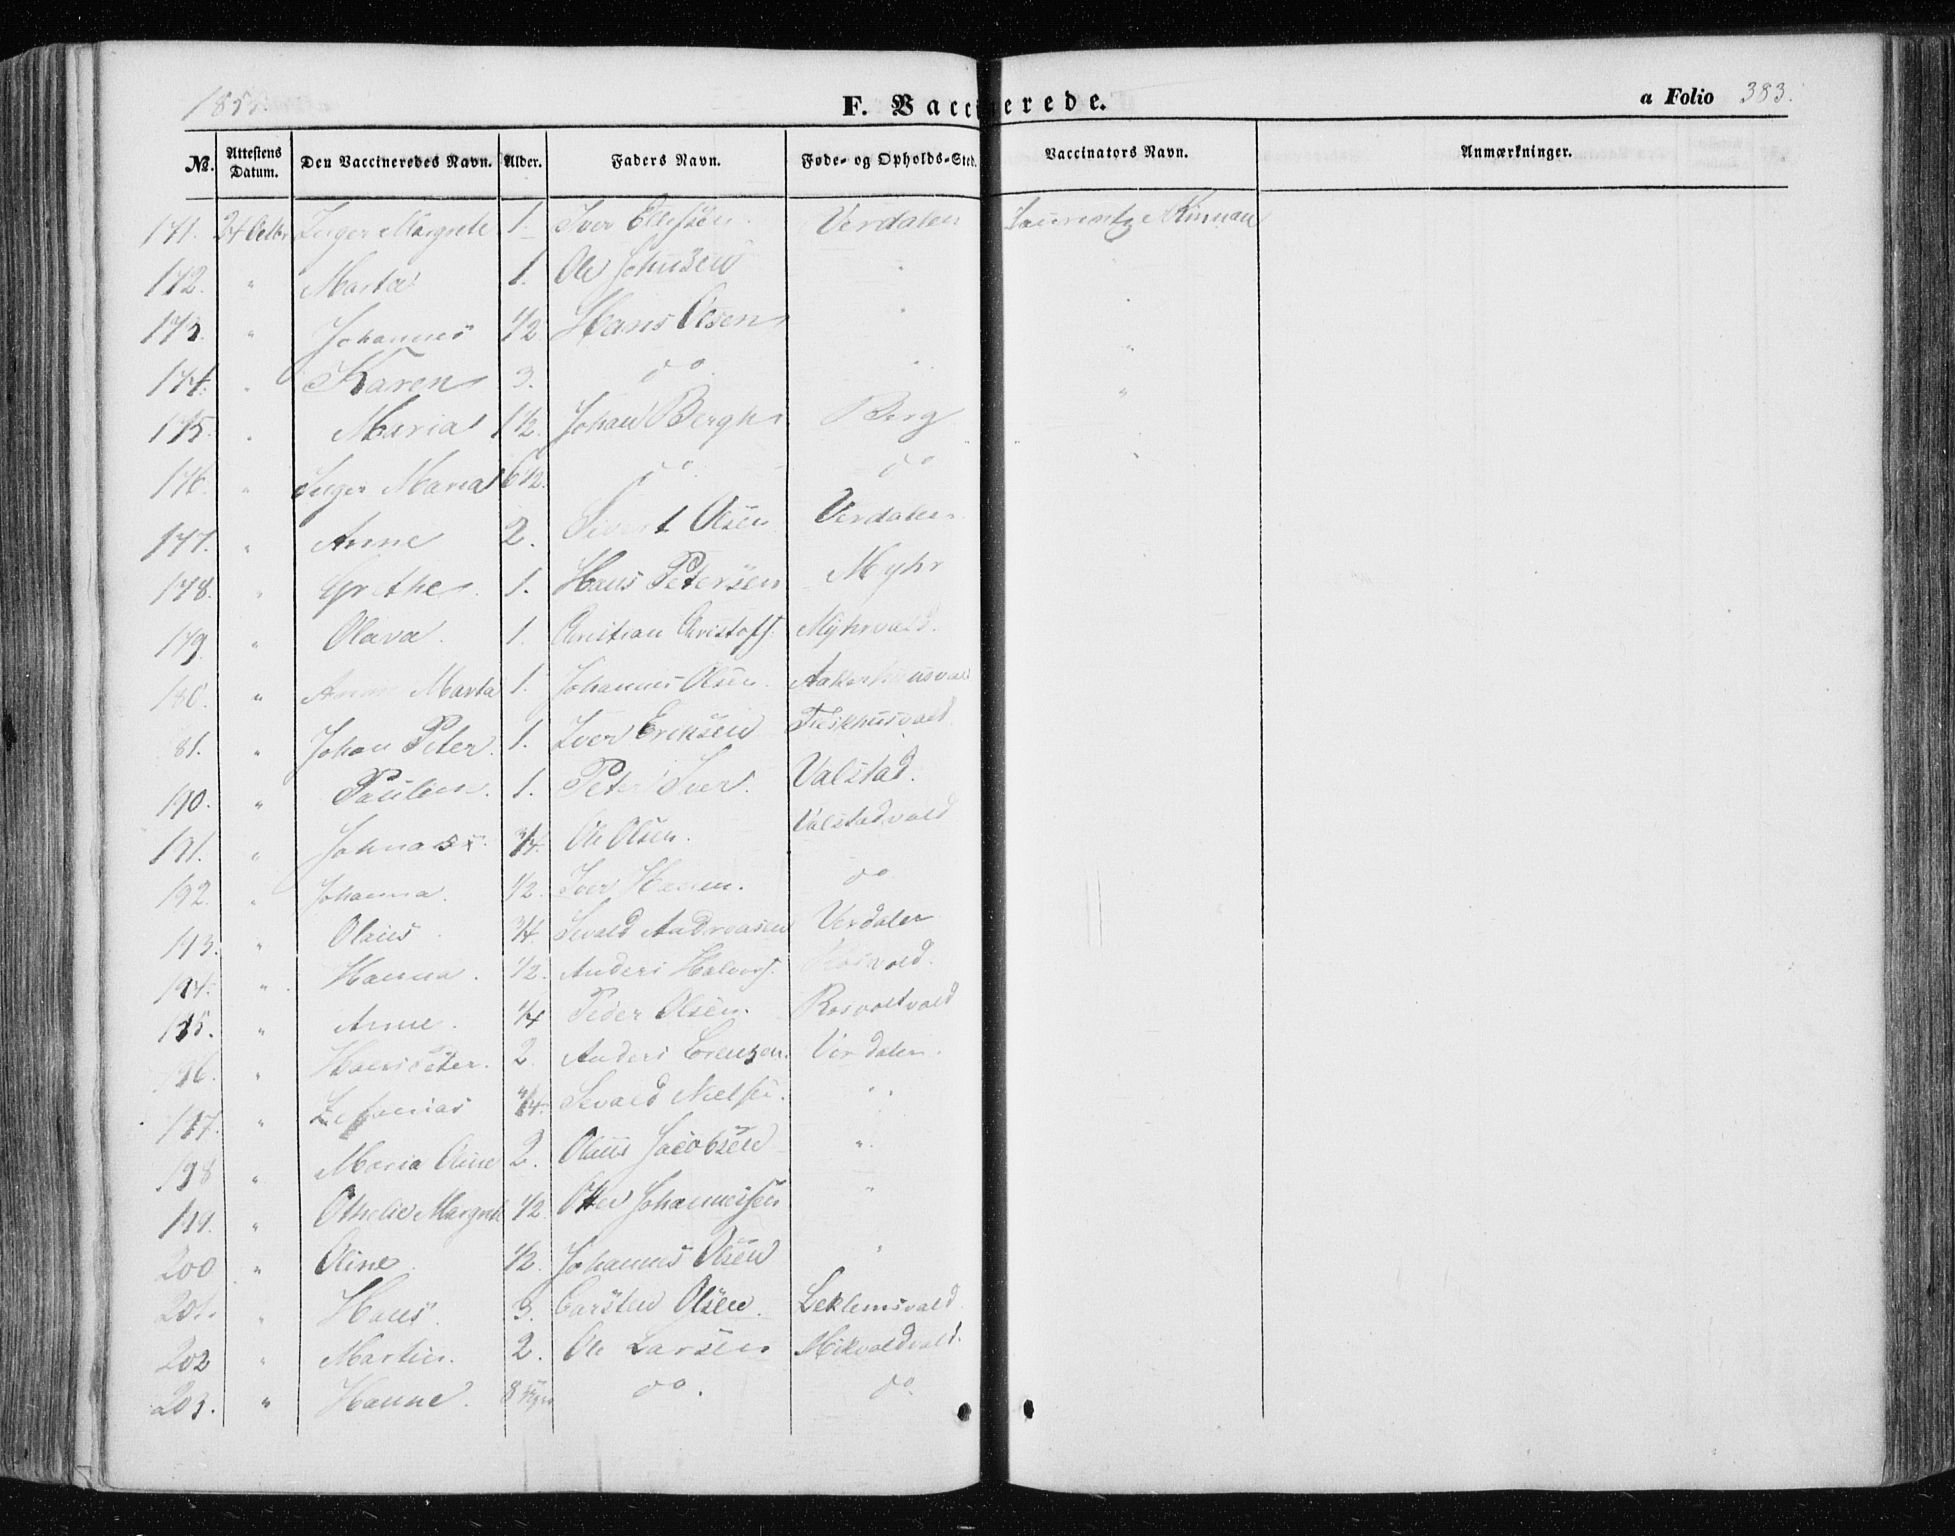 185
F. Vaccinerede.
a Folio 383.
№. Attestens Datum. Den Vaccineredes Navn. Alder. Faders Navn. Føde- og Opholds-Sted. Vaccinators Navn. Anmærkninger.
171. 24 Octbr Inger Margrete 1. Iver Ellefsen. Verdalen Laurentz Kinnan
172. " Marta 1. Ole Johnsen "
173. " Johannes 1/2 Hans Olsen " "
174. " Karen 3. do. " "
175. " Maria 1 1/2. Johan Bergh Berg "
176. " Inger Maria 6 1/2. do do
177. " Anne 2. Sivert Olsen Verdalen
178. " Grethe 1. Hans Petersen Myhr
179. " Olava. 1. Christian Christoff. Myhrvald.
180. " Anne Marta 1. Johannes Olsen. Aakerhuusvald
81. " Johan Peter. 1. Iver Eriksen
190. " Paulin. 1. Peter Iver. Valstad.
191. " Johnas 3/4. Ole Olsen. Valstadvald
192. " Johanna. 1/2. Iver Hansen. do
193. " Olaus. 3/4. Sevald Andreasen Verdalen
194. " Hanna. 1/2. Anders Halvors.
195. " Anne. 1/4 Peder Olsen. Rosvoldvald
196. " Hans Peter. 2. Anders Verdalen.
197. " Zefanias 3/4. Sevald Nielsen. "
198 " Maria Oline 2. Olaus Jacobsen ".
199. " Othelie Margrete 1/2 Otter Johannessen "
200 " Oline. 1/2. Johannes Olsen "
201. " Hans. 3. Carsten Olsen. Leklemsvald
202 " Martin. 2. Ole Larsen Mikvoldvald.
203. " Hanne. 8 do. do.